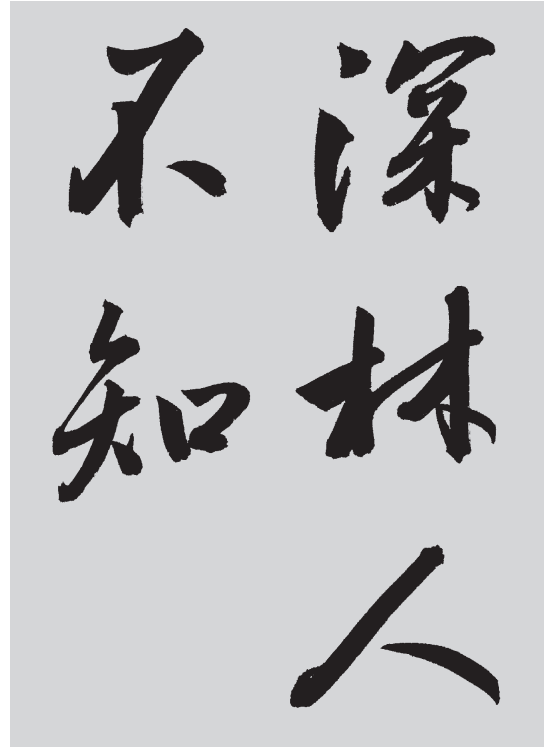 深林人
不知